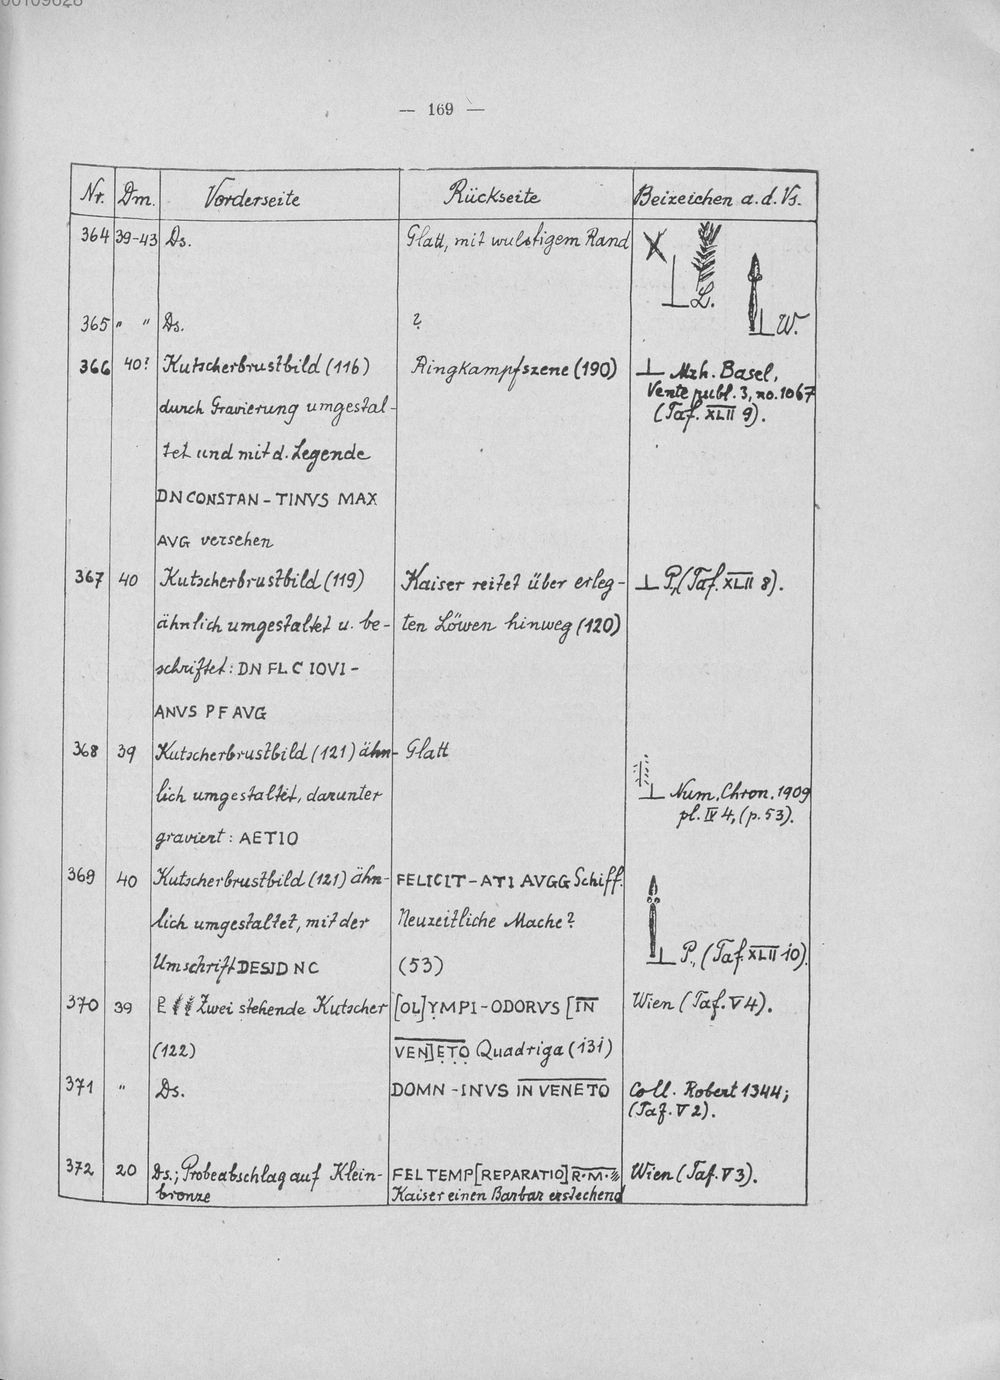 00109628
— 169 —
Nr. Dm. Vorderseite Rückseite Beizeichen a. d. Vs.
364 39-43 Ds. Glatt, mit wulstigem Rand
L.
W.
365 " " Ds. ?
366 40? Kutscherbrustbild (116) Ringkampfszene (190) ⊥ Mzh. Basel,
Vente publ. 3, no. 1067
durch Gravierung umgestal- (Taf. XLII 9).
tet und mit d. Legende
DN CONSTAN - TINVS MAX
AVG versehen
367 40 Kutscherbrustbild (119) Kaiser reitet über erleg- ⊥ P, (Taf. XLII 8).
ähnlich umgestaltet u. be- ten Löwen hinweg (120)
schriftet: DN FL C IOVI -
ANVS P F AVG
368 39 Kutscherbrustbild (121) ähn- Glatt
lich umgestaltet, darunter ⊥ Num. Chron. 1909
pl. IV 4, (p. 53).
graviert: AETIO
369 40 Kutscherbrustbild (121) ähn- FELICIT - ATI AVGG Schiff.
lich umgestaltet, mit der Neuzeitliche Mache?
Umschrift DESID NC (53) P., (Taf. XLII 10).
370 39 Zwei stehende Kutscher [OL]YMPI - ODORVS [IN Wien (Taf. V 4).
(122) VEN]ETO Quadriga (131)
371 " Ds. DOMN - INVS IN VENETO Coll. Robert 1344;
(Taf. V 2).
372 20 Ds.; Probeabschlag auf Klein- FEL TEMP [REPARATIO] R·M· Wien (Taf. V 3).
bronze Kaiser einen Barbar erstechend